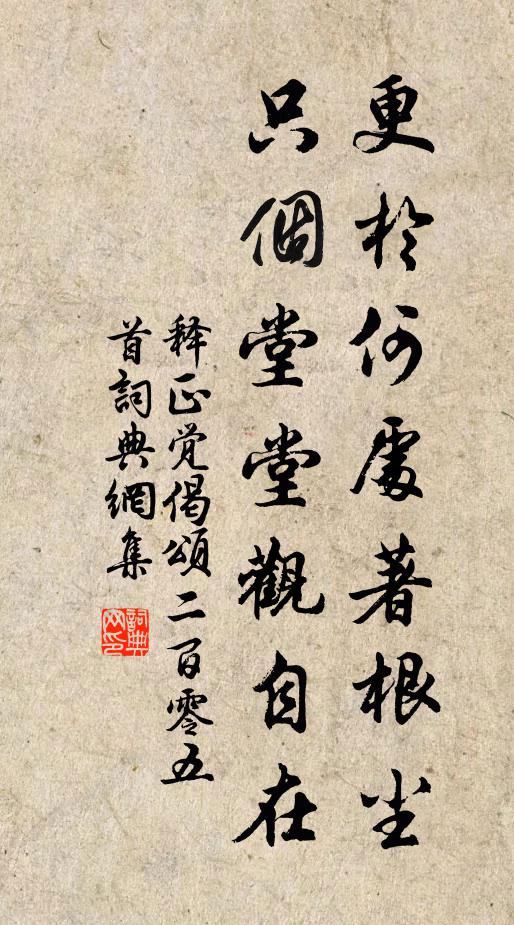 更於何處著根尘
只個堂堂觀自在
释正觉偈頌二百零五
首詞典網集
詞典
网印